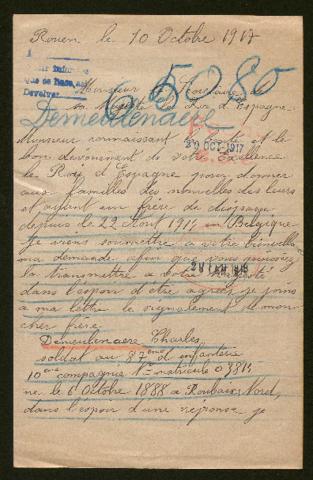 Rouen le 10 Octobre 1917
que se hace, así
Devolver
Monsieur
65080
sa Majesté le Roi d'Espagne
Demeulenaere
Monsieur connaissant et le
bon dévouement de votre Excellence
29 OCT. 1917
le Roi d'Espagne pour donner
aux familles des nouvelles des leurs
et ayant un frère de disparu
depuis le 22 Août 1914 en Belgique
Je viens soumettre à votre bienveillance
ma demande afin que vous puissiez
la transmettre à votre Majesté
dans l'espoir d'être agréé je joins
à ma lettre le signalement de mon
cher frère
Demeulenaere Charles
soldat au 87ème d'infanterie
10ème compagnie Nº matricule 0981
né le 6 Octobre 1888 à Roubaix Nord
dans l'espoir d'une réponse je